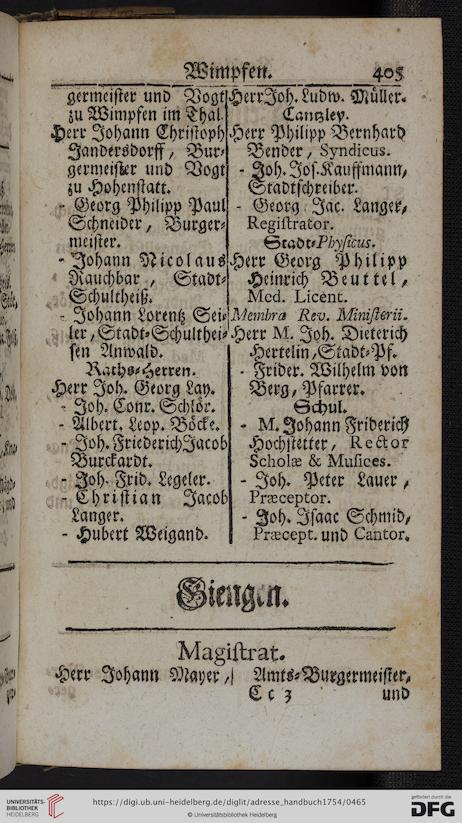 Wimpfen. 405
germeister und Vogt
zu Wimpfen im Thal.
Herr Johann Christoph
Jandersdorff, Bur-
germeister und Vogt
zu Hohenstatt.
- Georg Philipp Paul
Schneider, Burger-
meister.
- Johann Nicolaus
Rauchbar, Stadt-
Schultheiß.
- Johann Lorentz Sei-
ler, Stadt-Schulthei-
sen Anwald.
Raths-Herren.
Herr Joh. Georg Lay.
- Joh. Conr. Schlör.
- Albert. Leop. Böcke.
- Joh. Friederich Jacob
Burckardt.
- Joh. Frid. Legeler.
- Christian Jacob
Langer.
- Hubert Weigand.
Herr Joh. Ludw. Müller.
Cantzley.
Herr Philipp Bernhard
Bender, Syndicus.
- Joh. Jos. Kauffmann,
Stadtschreiber.
- Georg Jac. Langer,
Registrator.
Stadt-Physicus.
Herr Georg Philipp
Heinrich Beuttel,
Med. Licent.
Membra Rev. Ministerii.
Herr M. Joh. Dieterich
Hertelin, Stadt-Pf.
- Frider. Wilhelm von
Berg, Pfarrer.
Schul.
- M. Johann Friderich
Hochstetter, Rector
Scholæ & Musices.
- Joh. Peter Lauer,
Præceptor.
- Joh. Isaac Schmid,
Præcept. und Cantor.
Giengen.
Magistrat.
Herr Johann Mayer, Amts-Burgermeister,
Cc 3 und
UNIVERSITÄTS-
BIBLIOTHEK
HEIDELBERG
https://digi.ub.uni-heidelberg.de/diglit/adresse_handbuch1754/0465
© Universitätsbibliothek Heidelberg
gefördert durch die
DFG